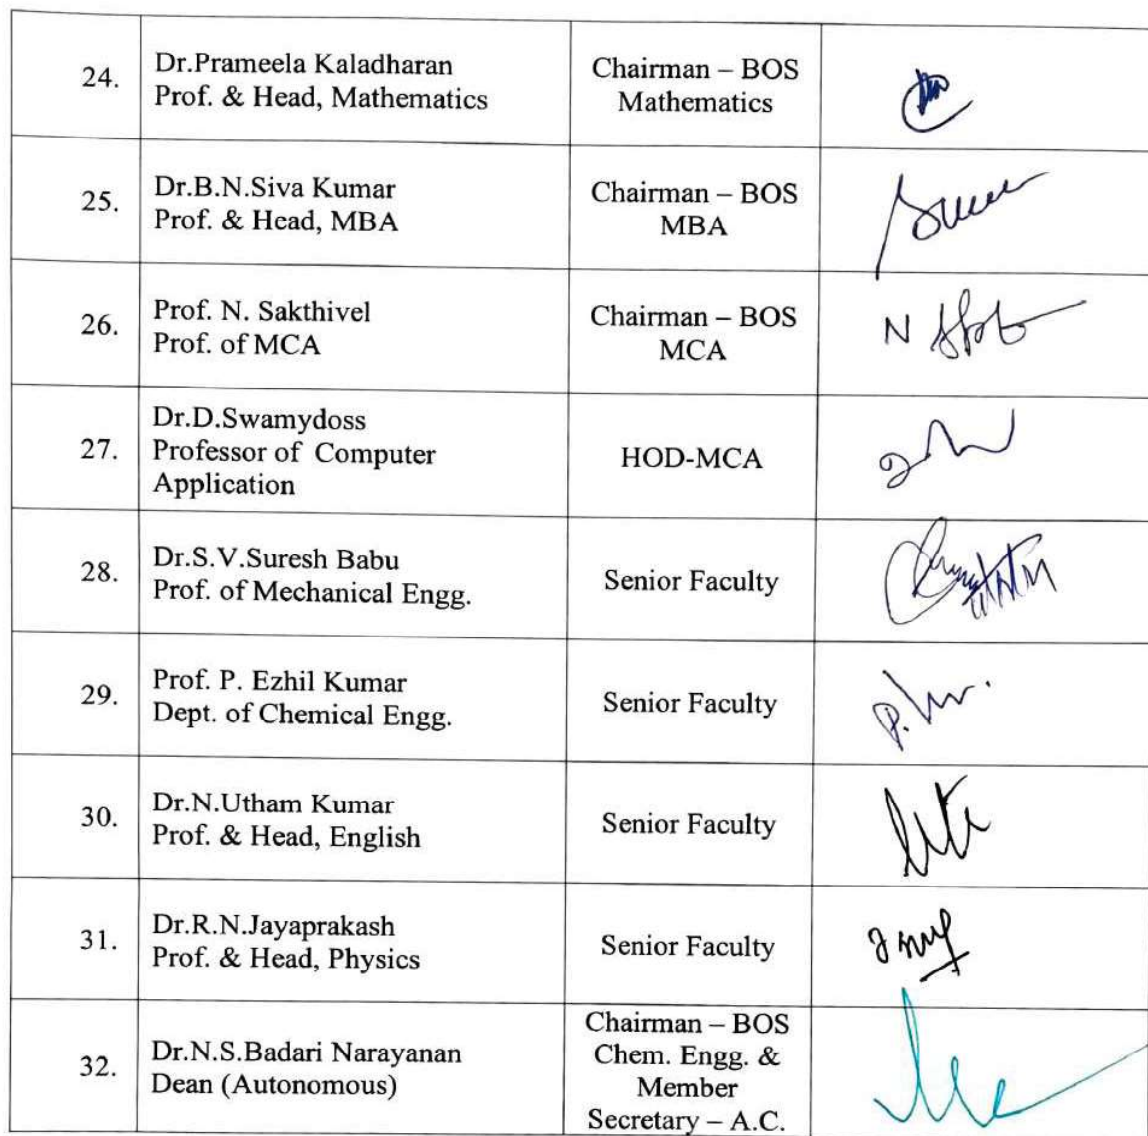 24.
Dr.Prameela Kaladharan
Prof. & Head, Mathematics
Chairman – BOS
Mathematics
25.
Dr.B.N.Siva Kumar
Prof. & Head, MBA
Chairman – BOS
MBA
26.
Prof. N. Sakthivel
Prof. of MCA
Chairman – BOS
MCA
N
27.
Dr.D.Swamydoss
Professor of Computer
Application
HOD-MCA
28.
Dr.S.V.Suresh Babu
Prof. of Mechanical Engg.
Senior Faculty
29.
Prof. P. Ezhil Kumar
Dept. of Chemical Engg.
Senior Faculty
P.
30.
Dr.N.Utham Kumar
Prof. & Head, English
Senior Faculty
31.
Dr.R.N.Jayaprakash
Prof. & Head, Physics
Senior Faculty
32.
Dr.N.S.Badari Narayanan
Dean (Autonomous)
Chairman – BOS
Chem. Engg. &
Member
Secretary – A.C.